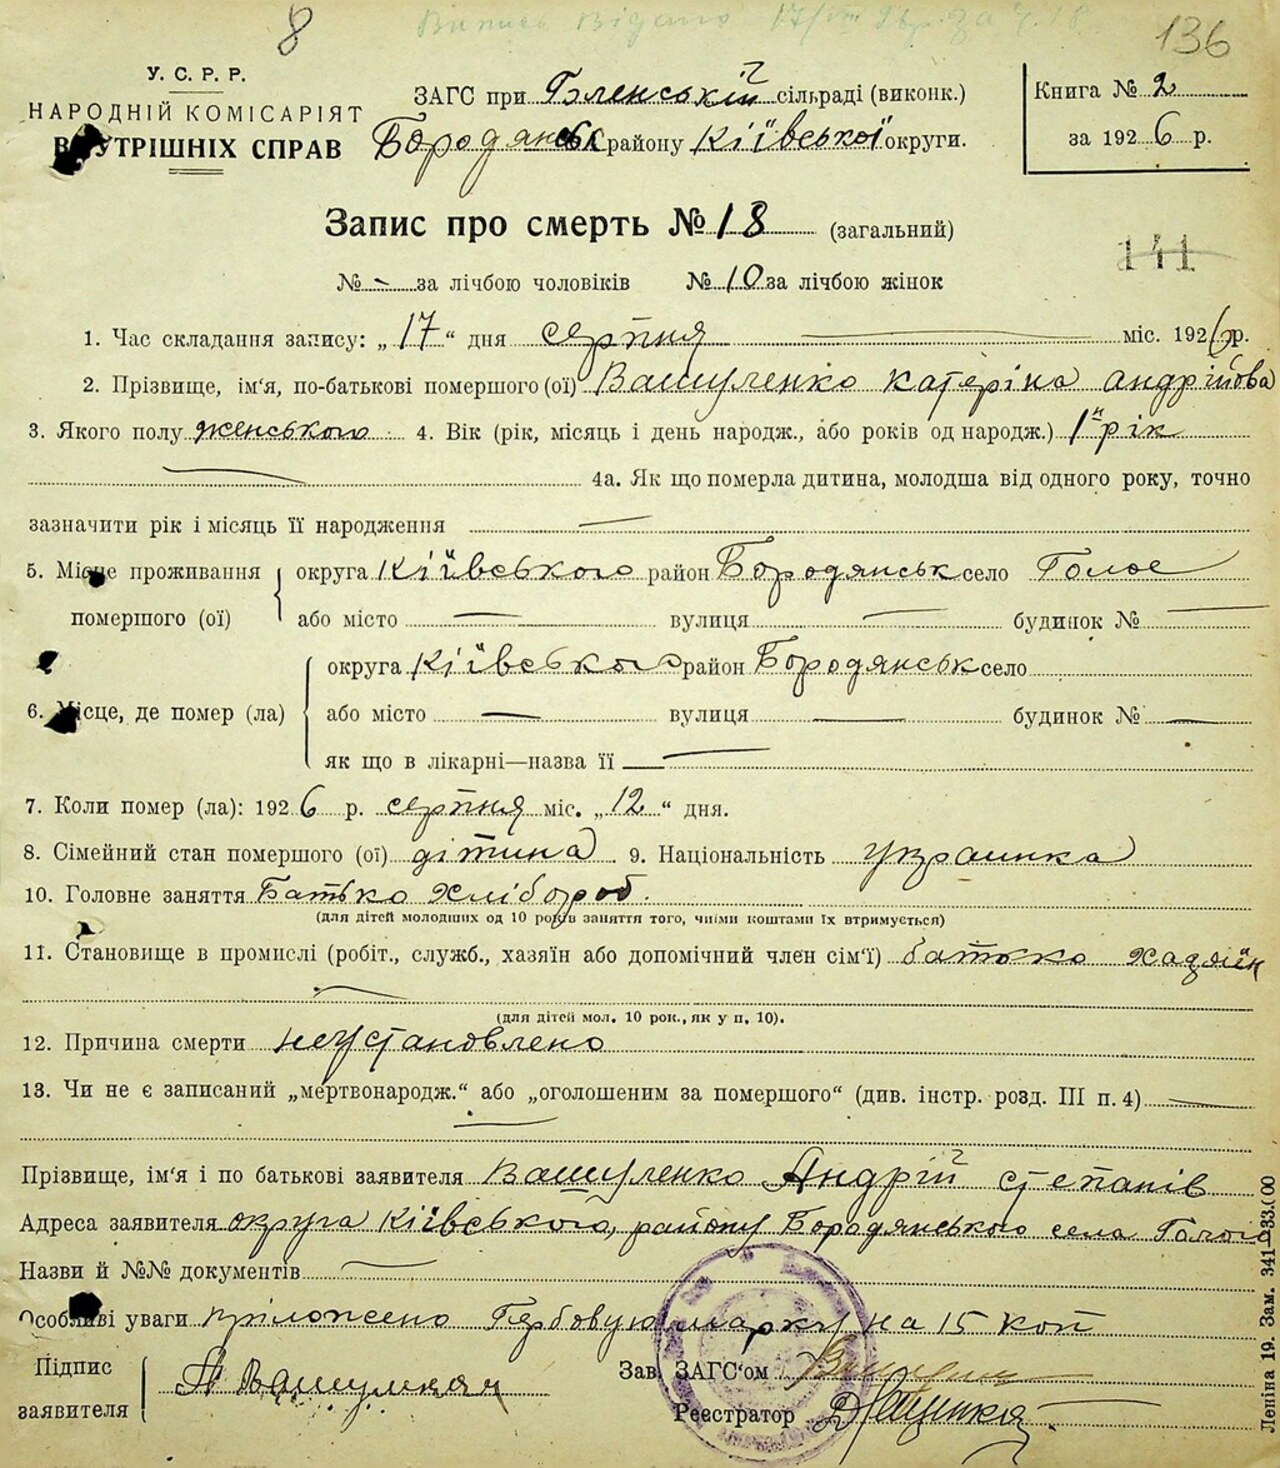 Выпись Відано 17/VIII 26 р. за № 18
8
136
У. С. Р. Р.
НАРОДНІЙ КОМІСАРІЯТ
ВНУТРІШНІХ СПРАВ
ЗАГС при Бленській сільраді (виконк.)
Бородянськ району Кіївської округи.
Книга № 2
за 1926 р.
Запис про смерть № 18 (загальний)
141
№ - за лічбою чоловіків № 10 за лічбою жінок
1. Час складання запису: „17“ дня серпня міс. 1926 р.
2. Прізвище, ім'я, по-батькові помершого (ої) Вашуленко Катеріна Андрійова
3. Якого полу женського 4. Вік (рік, місяць і день народж., або років од народж.) 1н рік
4а. Як що померла дитина, молодша від одного року, точно
зазначити рік і місяць її народження —
5. Місце проживання помершого (ої) округа Кіївського район Бородянськ село Голое
або місто — вулиця — будинок № —
6. Місце, де помер (ла) округа Кіївського район Бородянськ село
або місто — вулиця — будинок № —
як що в лікарні—назва її —
7. Коли помер (ла): 1926 р. серпня міс. „12“ дня.
8. Сімейний стан помершого (ої) дітина 9. Національність украинка
10. Головне заняття Батько хлібороб.
(для дітей молодших од 10 років заняття того, чиїми коштами їх втримується)
11. Становище в промислі (робіт., служб., хазяїн або допомічний член сім'ї) батько хазяїн
(для дітей мол. 10 рок., як у п. 10).
12. Причина смерти неустановлено
13. Чи не є записаний „мертвонародж.“ або „оголошеним за помершого“ (див. інстр. розд. III п. 4) —
Прізвище, ім'я і по батькові заявителя Вашуленко Андрій Степанів
Адреса заявителя округа Кіївського, району Бородянського села Голого
Назви й №№ документів —
Особливі уваги пріложено Гербовую марку на 15 коп
Підпис заявителя А Вашулкян
Зав. ЗАГС'ом
Реєстратор
Леніна 19. Зам. 341—33.000